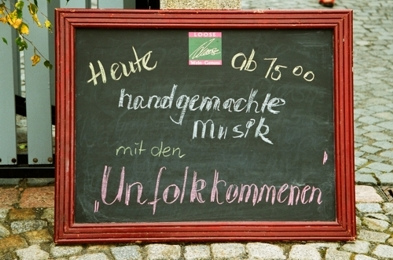 LOOSE
Heute ab 15 00
handgemachte
Musik
mit den
„Unfolkkommenen